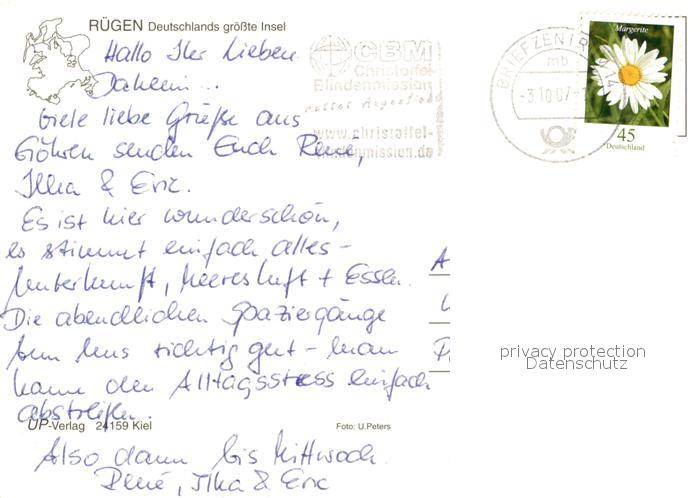 RÜGEN Deutschlands größte Insel
Hallo Ihr Lieben
Daheim...
Viele liebe Grüße aus
Göhren senden Euch René,
Ilka & Eric.
Es ist hier wunderschön,
es stimmt einfach alles -
Unterkunft, Meeresluft + Essen.
Die abendlichen Spaziergänge
tun uns richtig gut - man
kann den Alltagsstress einfach
abstreifen.
ÜP-Verlag 24159 Kiel
Foto: U.Peters
Also dann bis Mittwoch
René, Ilka & Eric
CBM
Christoffel-
Blindenmission
rettet Augenlicht
www.christoffel-
blindenmission.de
BRIEFZENTR
mb
-3.10.07
Margerite
45
Deutschland
privacy protection
Datenschutz